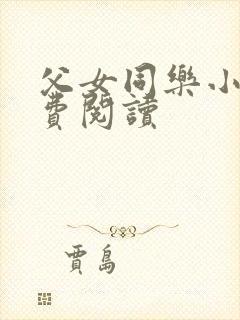 父女同樂小
費閱讀
賈島